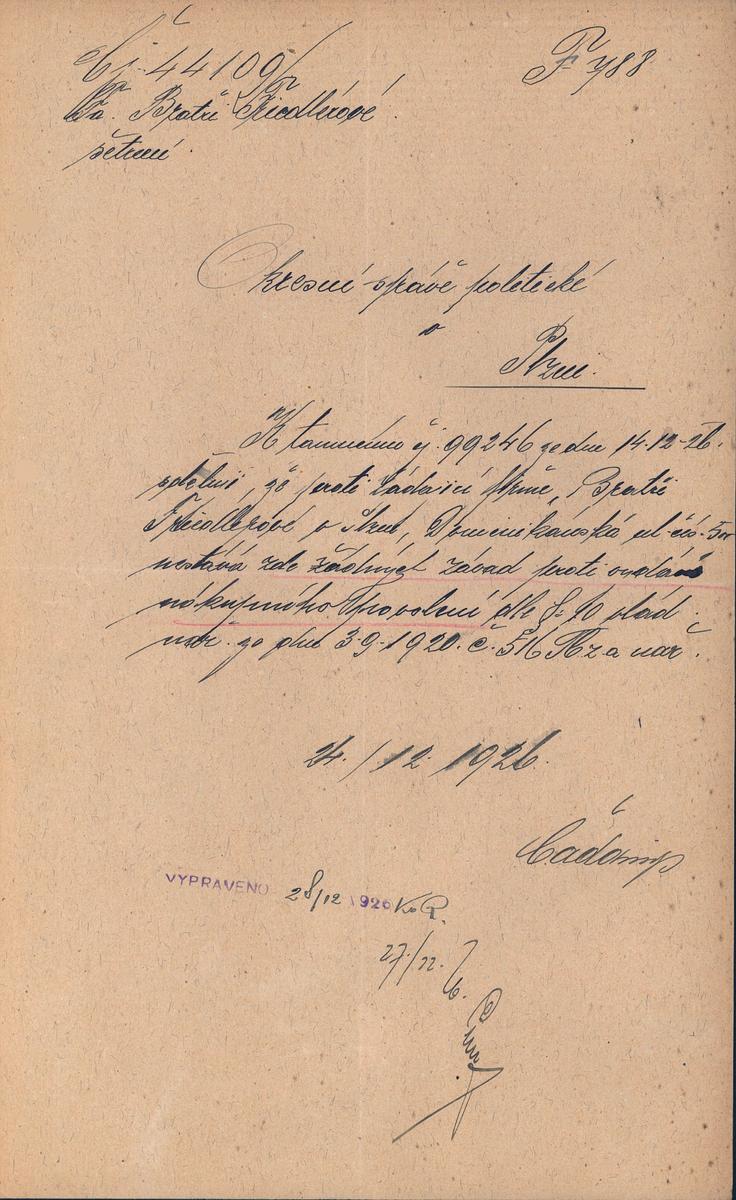 Čj. 44109/
F 788
Fa. Bratři Friedlerové
šetření.
Okresní správě politické
v
Plzni.
K tamnímu čj. 99246 ze dne 14.12.26.
sděluji, že proti žádající firmě, Bratři
Friedlerové v Plzni, Dominikánská ul. čís. 5
nestává zde žádných závad proti vydání
nákupního povolení dle § 10 vlád.
nař. ze dne 3.9.1920. č. 516 Sb. z. a nař.
24./12. 1926.
VYPRAVENO 28/12 1926
27/12. 26.